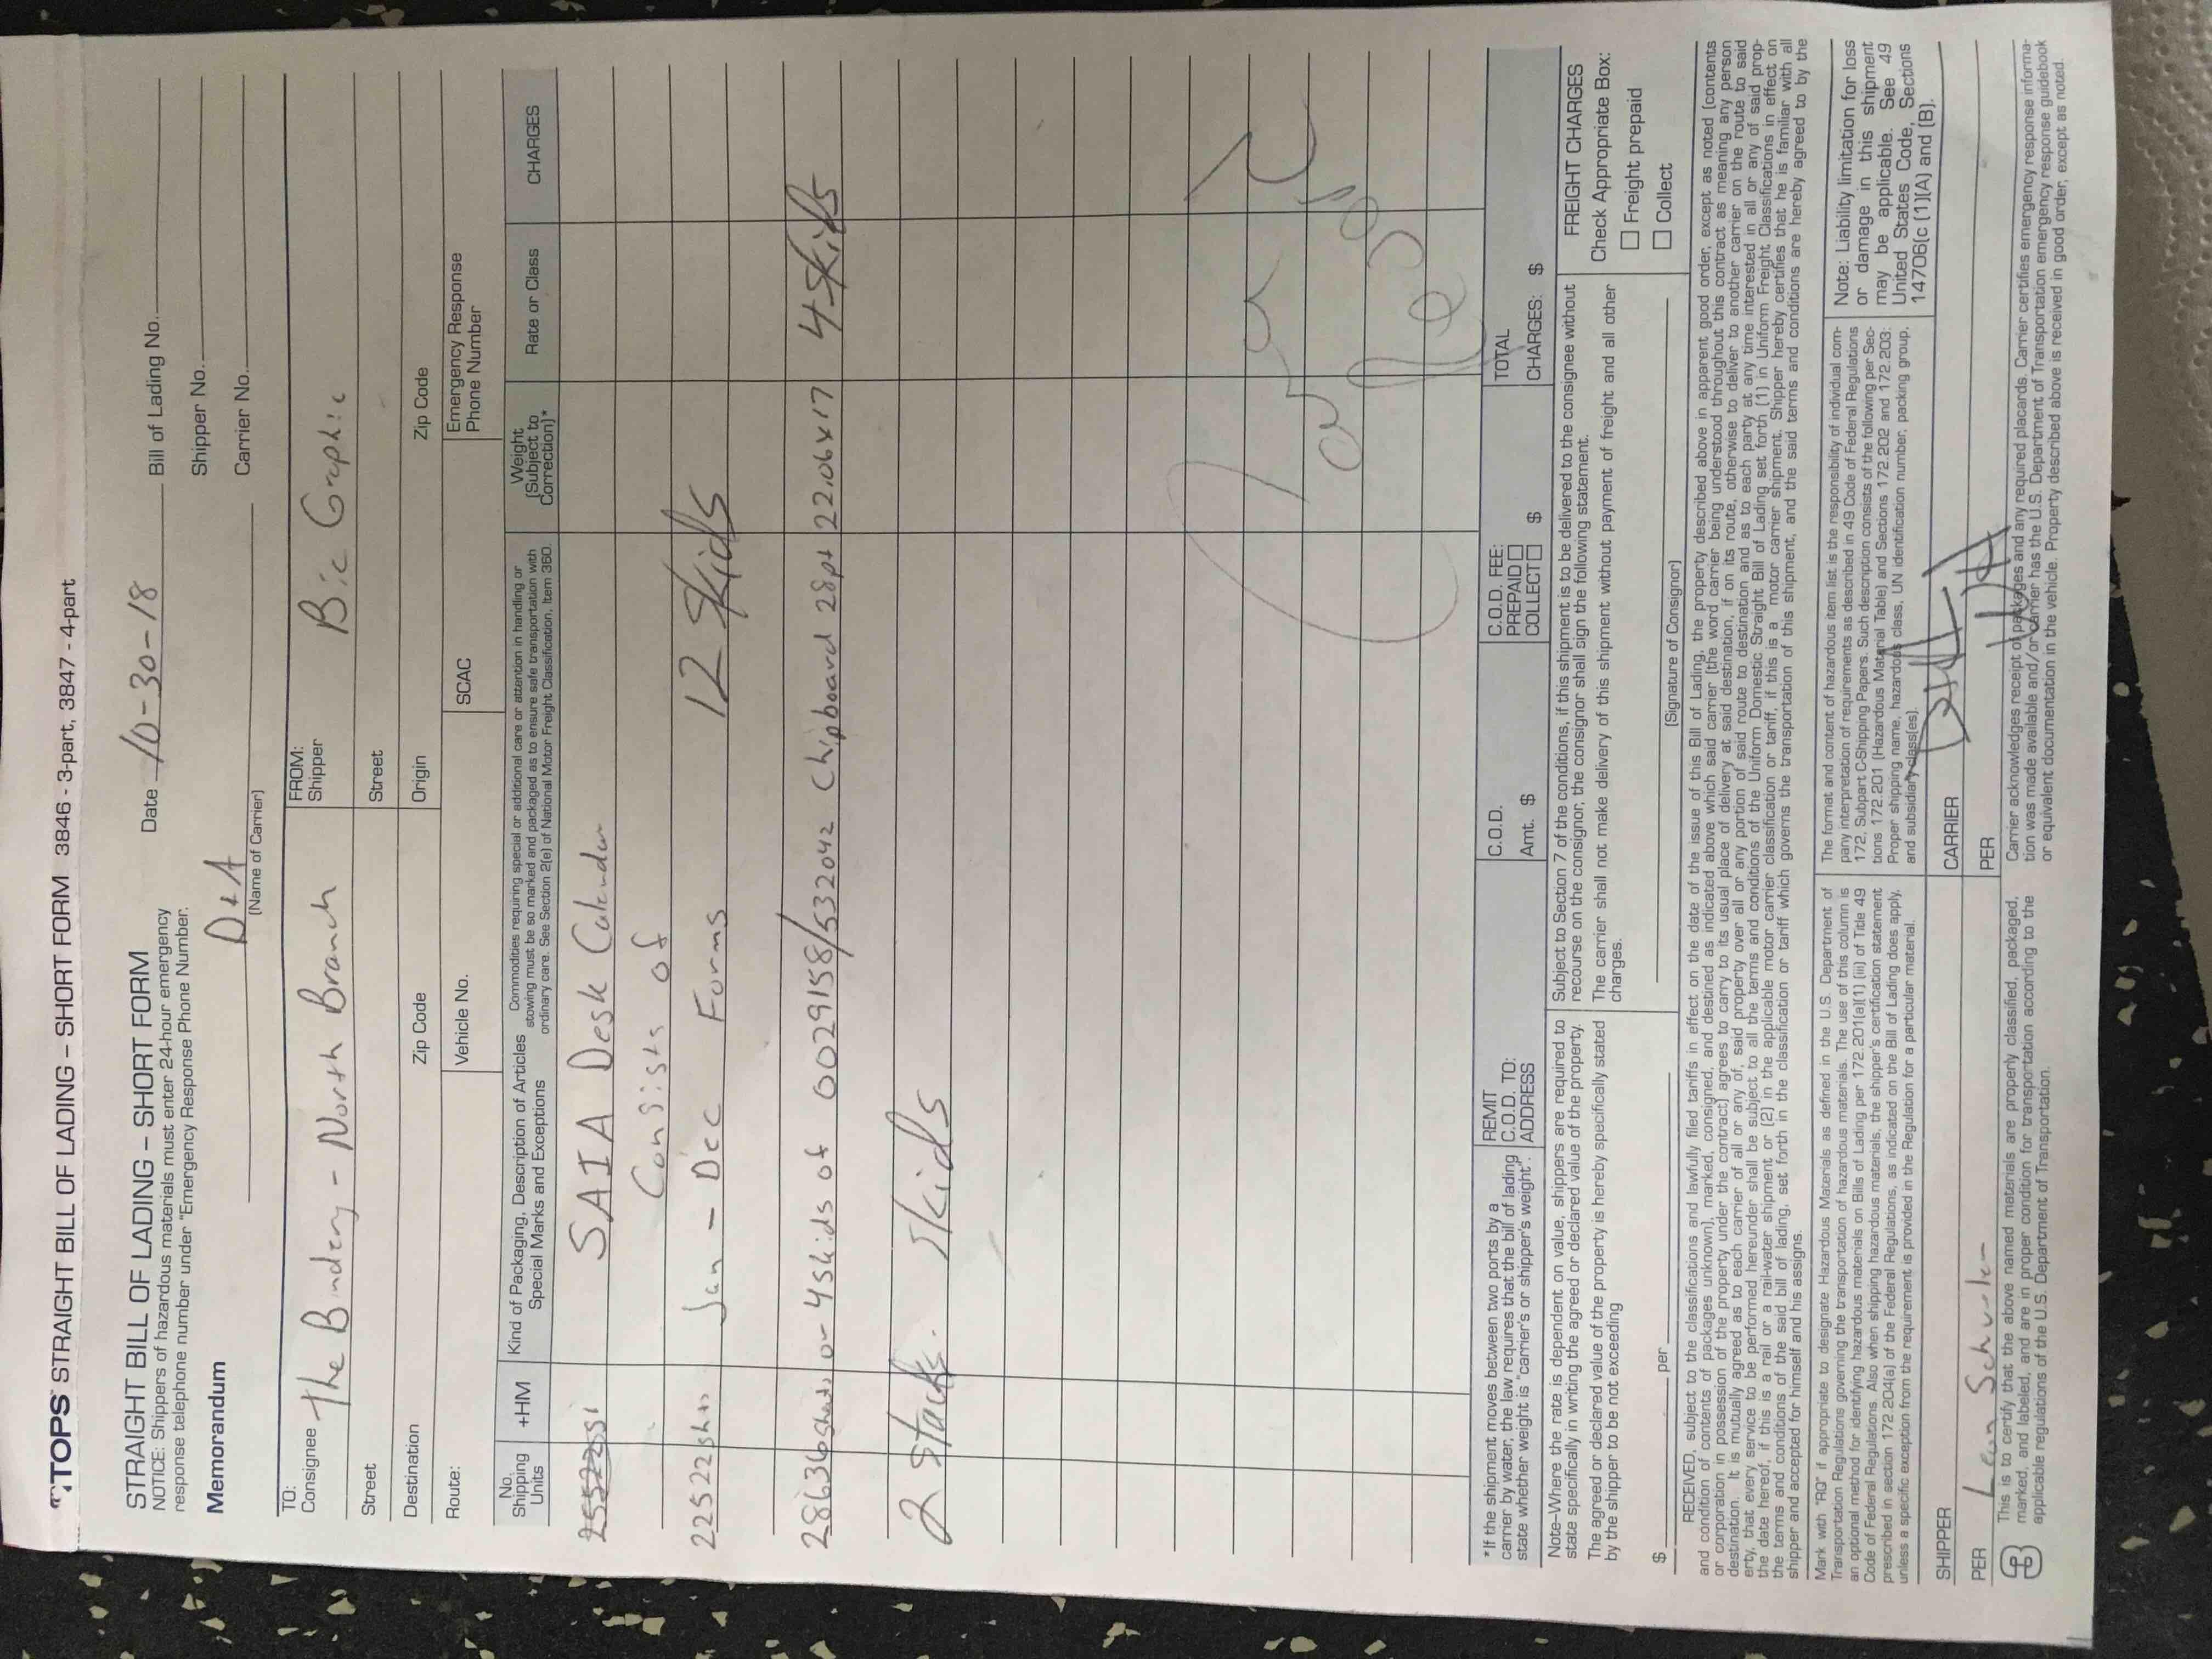 TOPS STRAIGHT BILL OF LADING – SHORT FORM 3846 - 3-part, 3847 - 4-part
STRAIGHT BILL OF LADING – SHORT FORM
NOTICE: Shippers of hazardous materials must enter 24-hour emergency
response telephone number under "Emergency Response Phone Number.
Date 10-30-18
Bill of Lading No.
Shipper No.
Carrier No.
Memorandum
D+A
(Name of Carrier)
TO:
Consignee The Bindery - North Branch
FROM:
Shipper Bic Graphic
Street
Street
Destination
Zip Code
Origin
Zip Code
Route:
Vehicle No.
SCAC
Emergency Response
Phone Number
No.
Shipping
Units
+HM
Kind of Packaging, Description of Articles
Special Marks and Exceptions
Commodities requiring special or additional care or attention in handling or
stowing must be so marked and packaged as to ensure safe transportation with
ordinary care. See Section 2(e) of National Motor Freight Classification, Item 360.
Weight
(Subject to
Correction)*
Rate or Class
CHARGES
SAIA Desk Calendar
Consists of
22522shts Jan - Dec Forms 12 Skids
28636 Sheets or 4 skids of 0029158/532042 Chipboard 28pt 22.06x17 4 Skids
2 stacks.
*If the shipment moves between two ports by a
carrier by water, the law requires that the bill of lading
state whether weight is "carrier's or shipper's weight".
REMIT
C.O.D. TO:
ADDRESS
C.O.D.
Amt. $
C.O.D. FEE:
PREPAID
COLLECT $
TOTAL
CHARGES: $
Note–Where the rate is dependent on value, shippers are required to
state specifically in writing the agreed or declared value of the property.
The agreed or declared value of the property is hereby specifically stated
by the shipper to be not exceeding
$ per
Subject to Section 7 of the conditions, if this shipment is to be delivered to the consignee without
recourse on the consignor, the consignor shall sign the following statement.
The carrier shall not make delivery of this shipment without payment of freight and all other
charges.
(Signature of Consignor)
FREIGHT CHARGES
Check Appropriate Box:
Freight prepaid
Collect
RECEIVED, subject to the classifications and lawfully filed tariffs in effect on the date of the issue of this Bill of Lading, the property described above in apparent good order, except as noted (contents
and condition of contents of packages unknown), marked, consigned, and destined as indicated above which said carrier (the word carrier being understood throughout this contract as meaning any person
or corporation in possession of the property under the contract) agrees to carry to its usual place of delivery at said destination, if on its route, otherwise to deliver to another carrier on the route to said
destination. It is mutually agreed as to each carrier of all or any of, said property over all or any portion of said route to destination and as to each party at any time interested in all or any of said prop-
erty, that every service to be performed hereunder shall be subject to all the terms and conditions of the Uniform Domestic Straight Bill of Lading set forth (1) in Uniform Freight Classifications in effect on
the date hereof, if this is a rail or a rail-water shipment or (2) in the applicable motor carrier classification or tariff, if this is a motor carrier shipment. Shipper hereby certifies that he is familiar with all
the terms and conditions of the said bill of lading, set forth in the classification or tariff which governs the transportation of this shipment, and the said terms and conditions are hereby agreed to by the
shipper and accepted for himself and his assigns.
Mark with "RQ" if appropriate to designate Hazardous Materials as defined in the U.S. Department of
Transportation Regulations governing the transportation of hazardous materials. The use of this column is
an optional method for identifying hazardous materials on Bills of Lading per 172.201(a)(1) (iii) of Title 49
Code of Federal Regulations. Also when shipping hazardous materials, the shipper's certification statement
prescribed in section 172.204(a) of the Federal Regulations, as indicated on the Bill of Lading does apply,
unless a specific exception from the requirement is provided in the Regulation for a particular material.
The format and content of hazardous item list is the responsibility of individual com-
pany interpretation of requirements as described in 49 Code of Federal Regulations
172, Subpart C-Shipping Papers. Such description consists of the following per Sec-
tions 172.201 (Hazardous Material Table) and Sections 172.202 and 172.203:
Proper shipping name, hazardous class, UN identification number, packing group,
and subsidiary class(es).
Note: Liability limitation for loss
or damage in this shipment
may be applicable. See 49
United States Code, Sections
14706(c (1)(A) and (B).
SHIPPER
CARRIER
PER
PER
This is to certify that the above named materials are properly classified, packaged,
marked, and labeled, and are in proper condition for transportation according to the
applicable regulations of the U.S. Department of Transportation.
Carrier acknowledges receipt of packages and any required placards. Carrier certifies emergency response informa-
tion was made available and/or carrier has the U.S. Department of Transportation emergency response guidebook
or equivalent documentation in the vehicle. Property described above is received in good order, except as noted.